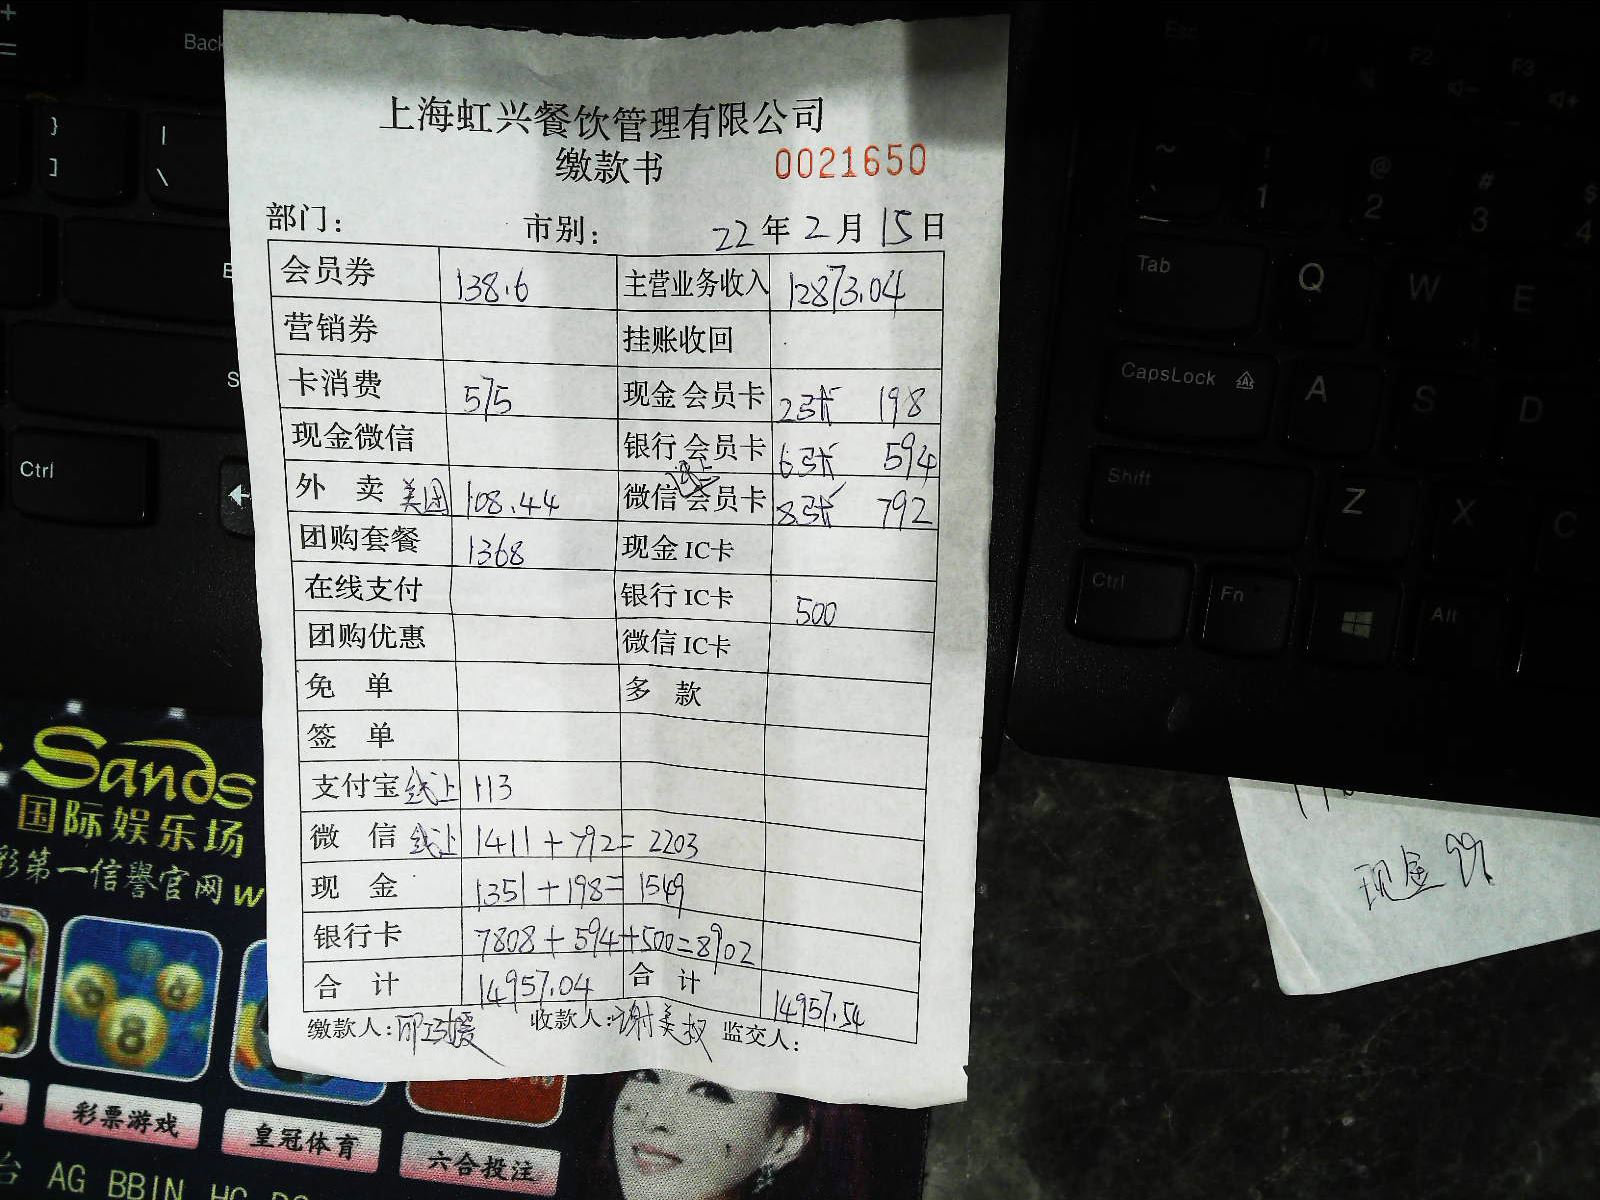 上海虹兴餐饮管理有限公司
缴款书 0021650
部门: 市别: 22年2月15日
会员券 138.6 主营业务收入 12873.04
营销券 挂账收回
卡消费 575 现金会员卡 2张 198
现金微信 银行会员卡 6张 594
外卖 美团 108.44 微信会员卡 线上 8张 792
团购套餐 1368 现金IC卡
在线支付 银行IC卡 500
团购优惠 微信IC卡
免单 多款
签单
支付宝 线上 113
微信 线上 1411+792=2203
现金 1351+198=1549
银行卡 7808+594+500=8902
合计 14957.04 合计 14957.54
缴款人: 收款人:谢美权 监交人:
现金 99
Sands
国际娱乐场
彩第一信誉官网W
8
彩票游戏
皇冠体育
六合投注
台 AG BBIN HG
Back
+
=
}
]
|
\
Ctrl
Esc
F1
F2
F3
~
!
1
@
2
#
3
$
4
Tab
Q
W
E
CapsLock
A
S
D
Shift
Z
X
C
Ctrl
Fn
Alt